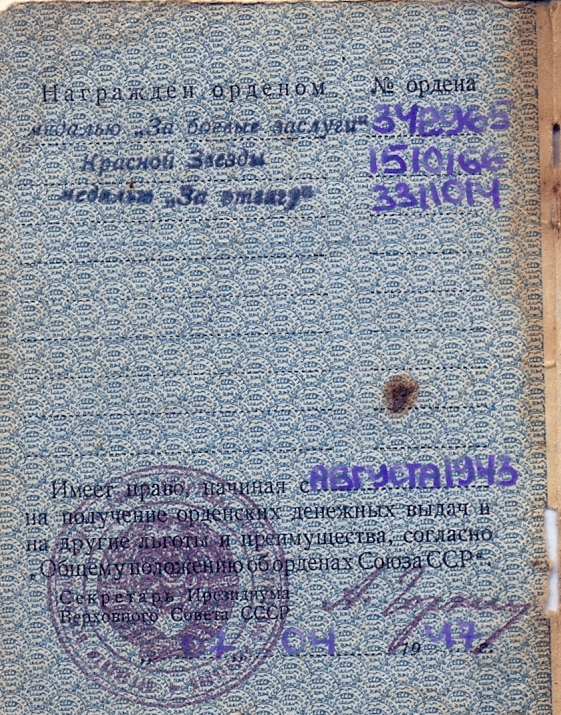 Награжден орденом № ордена
медалью „За боевые заслуги" 342965
Красной Звезды 1510166
медалью „За отвагу" 3311014
Имеет право, начиная с АВГУСТА 1943
на получение орденских денежных выдач и
на другие льготы и преимущества, согласно
„Общему положению об орденах Союза ССР".
Секретарь Президиума
Верховного Совета СССР
А. Горкин
„07" 04 1947 г.